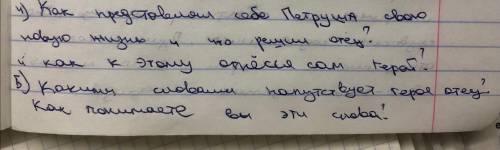 4) Как представлял себе Петруша свою
новую жизнь и что решил отец?
и как к этому отнёсся сам герой?
5) Какими словами напутствует героя отец?
Как понимаете вы эти слова?